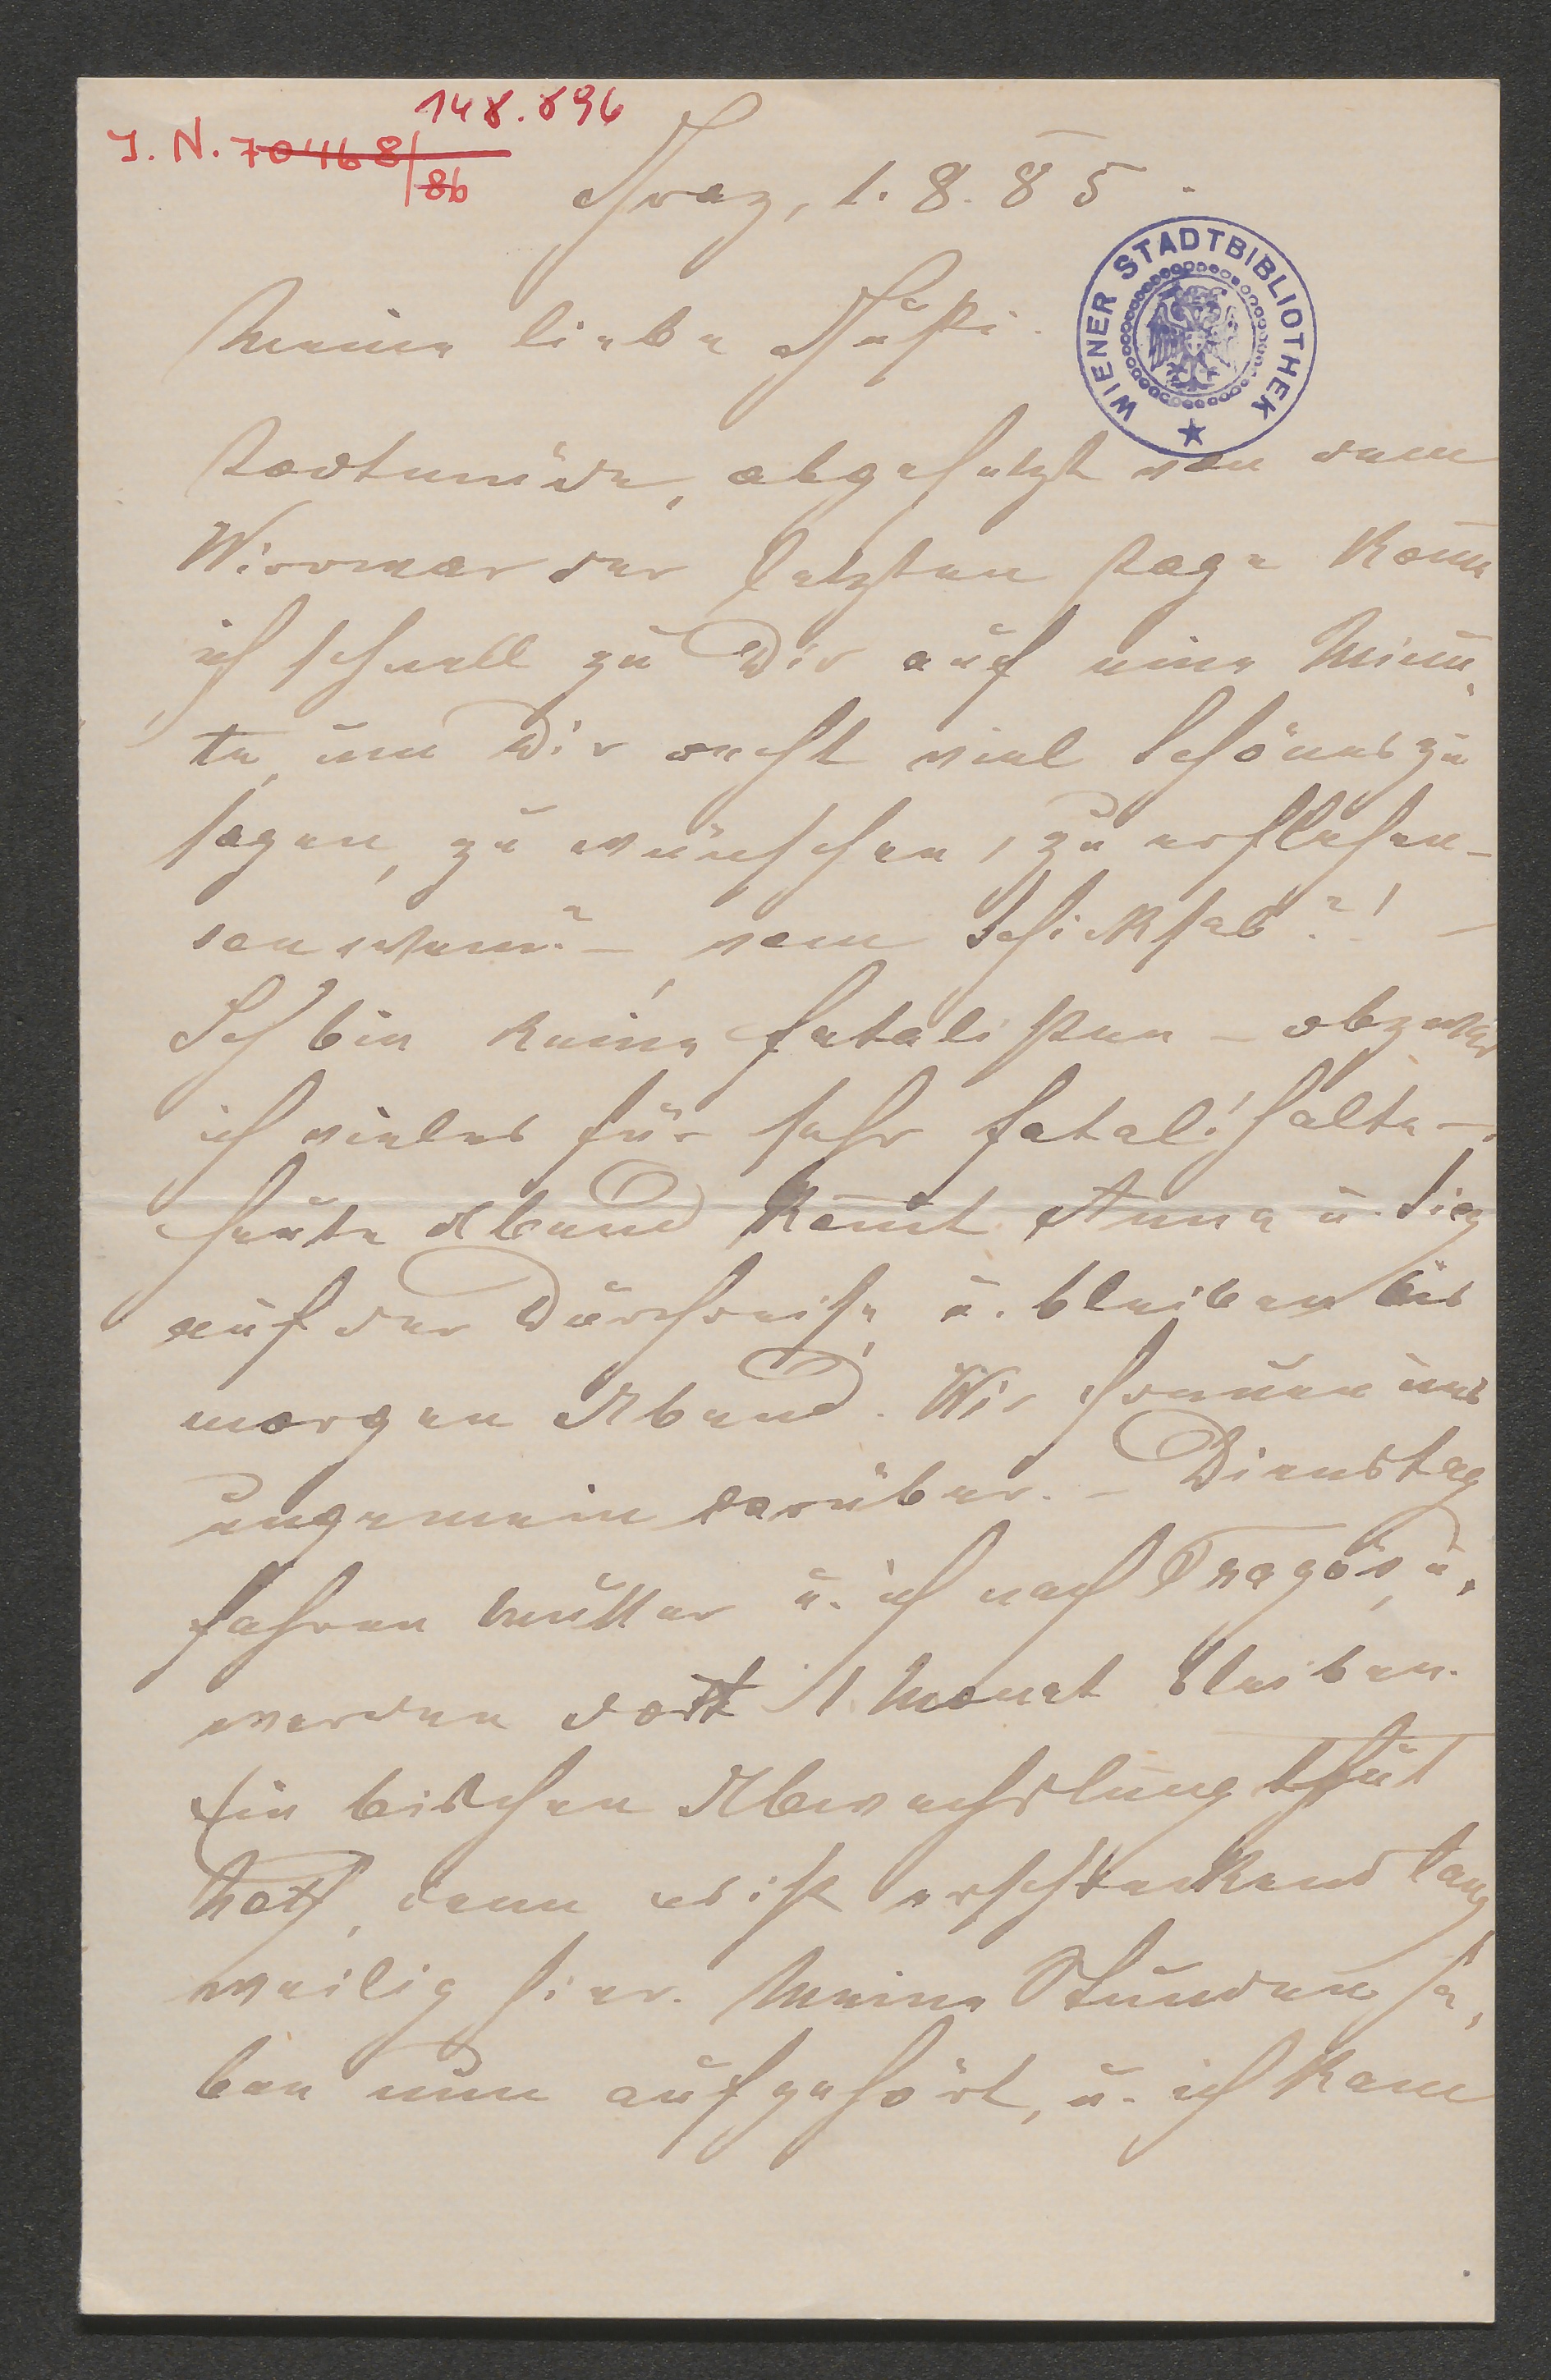 148.896
J. N. 70468/86
Graz, 1. 8. 85.
WIENER STADTBIBLIOTHEK
Meine liebe Gusti.
Todtmüde, abgehetzt von dem
Wirrwar der letzten Tage kom̅e
ich schnell zu Dir auf eine Minu-
te, um Dir recht viel Schönes zu
sagen, zu wünschen, zu erflehen –
von wem? – vom Schicksal?! –
Ich bin keine Fatalistin – obzwar
ich vieles für sehr fatal! halte –.
Heute Abend kom̅t Anna u.
auf der Durchreise, u. bleiben bis
morgen Abend. Wir freuen uns
ungemein darüber. – Dienstag
fahren Mutter u. ich nach Tragös, u.
werden dort 1 Monat bleiben.
Ein bischen Abwechslung thut
Noth, denn es ist erschreckend lang
weilig hier. Meine Stunden ha-
ben nun aufgehört, u. ich kann